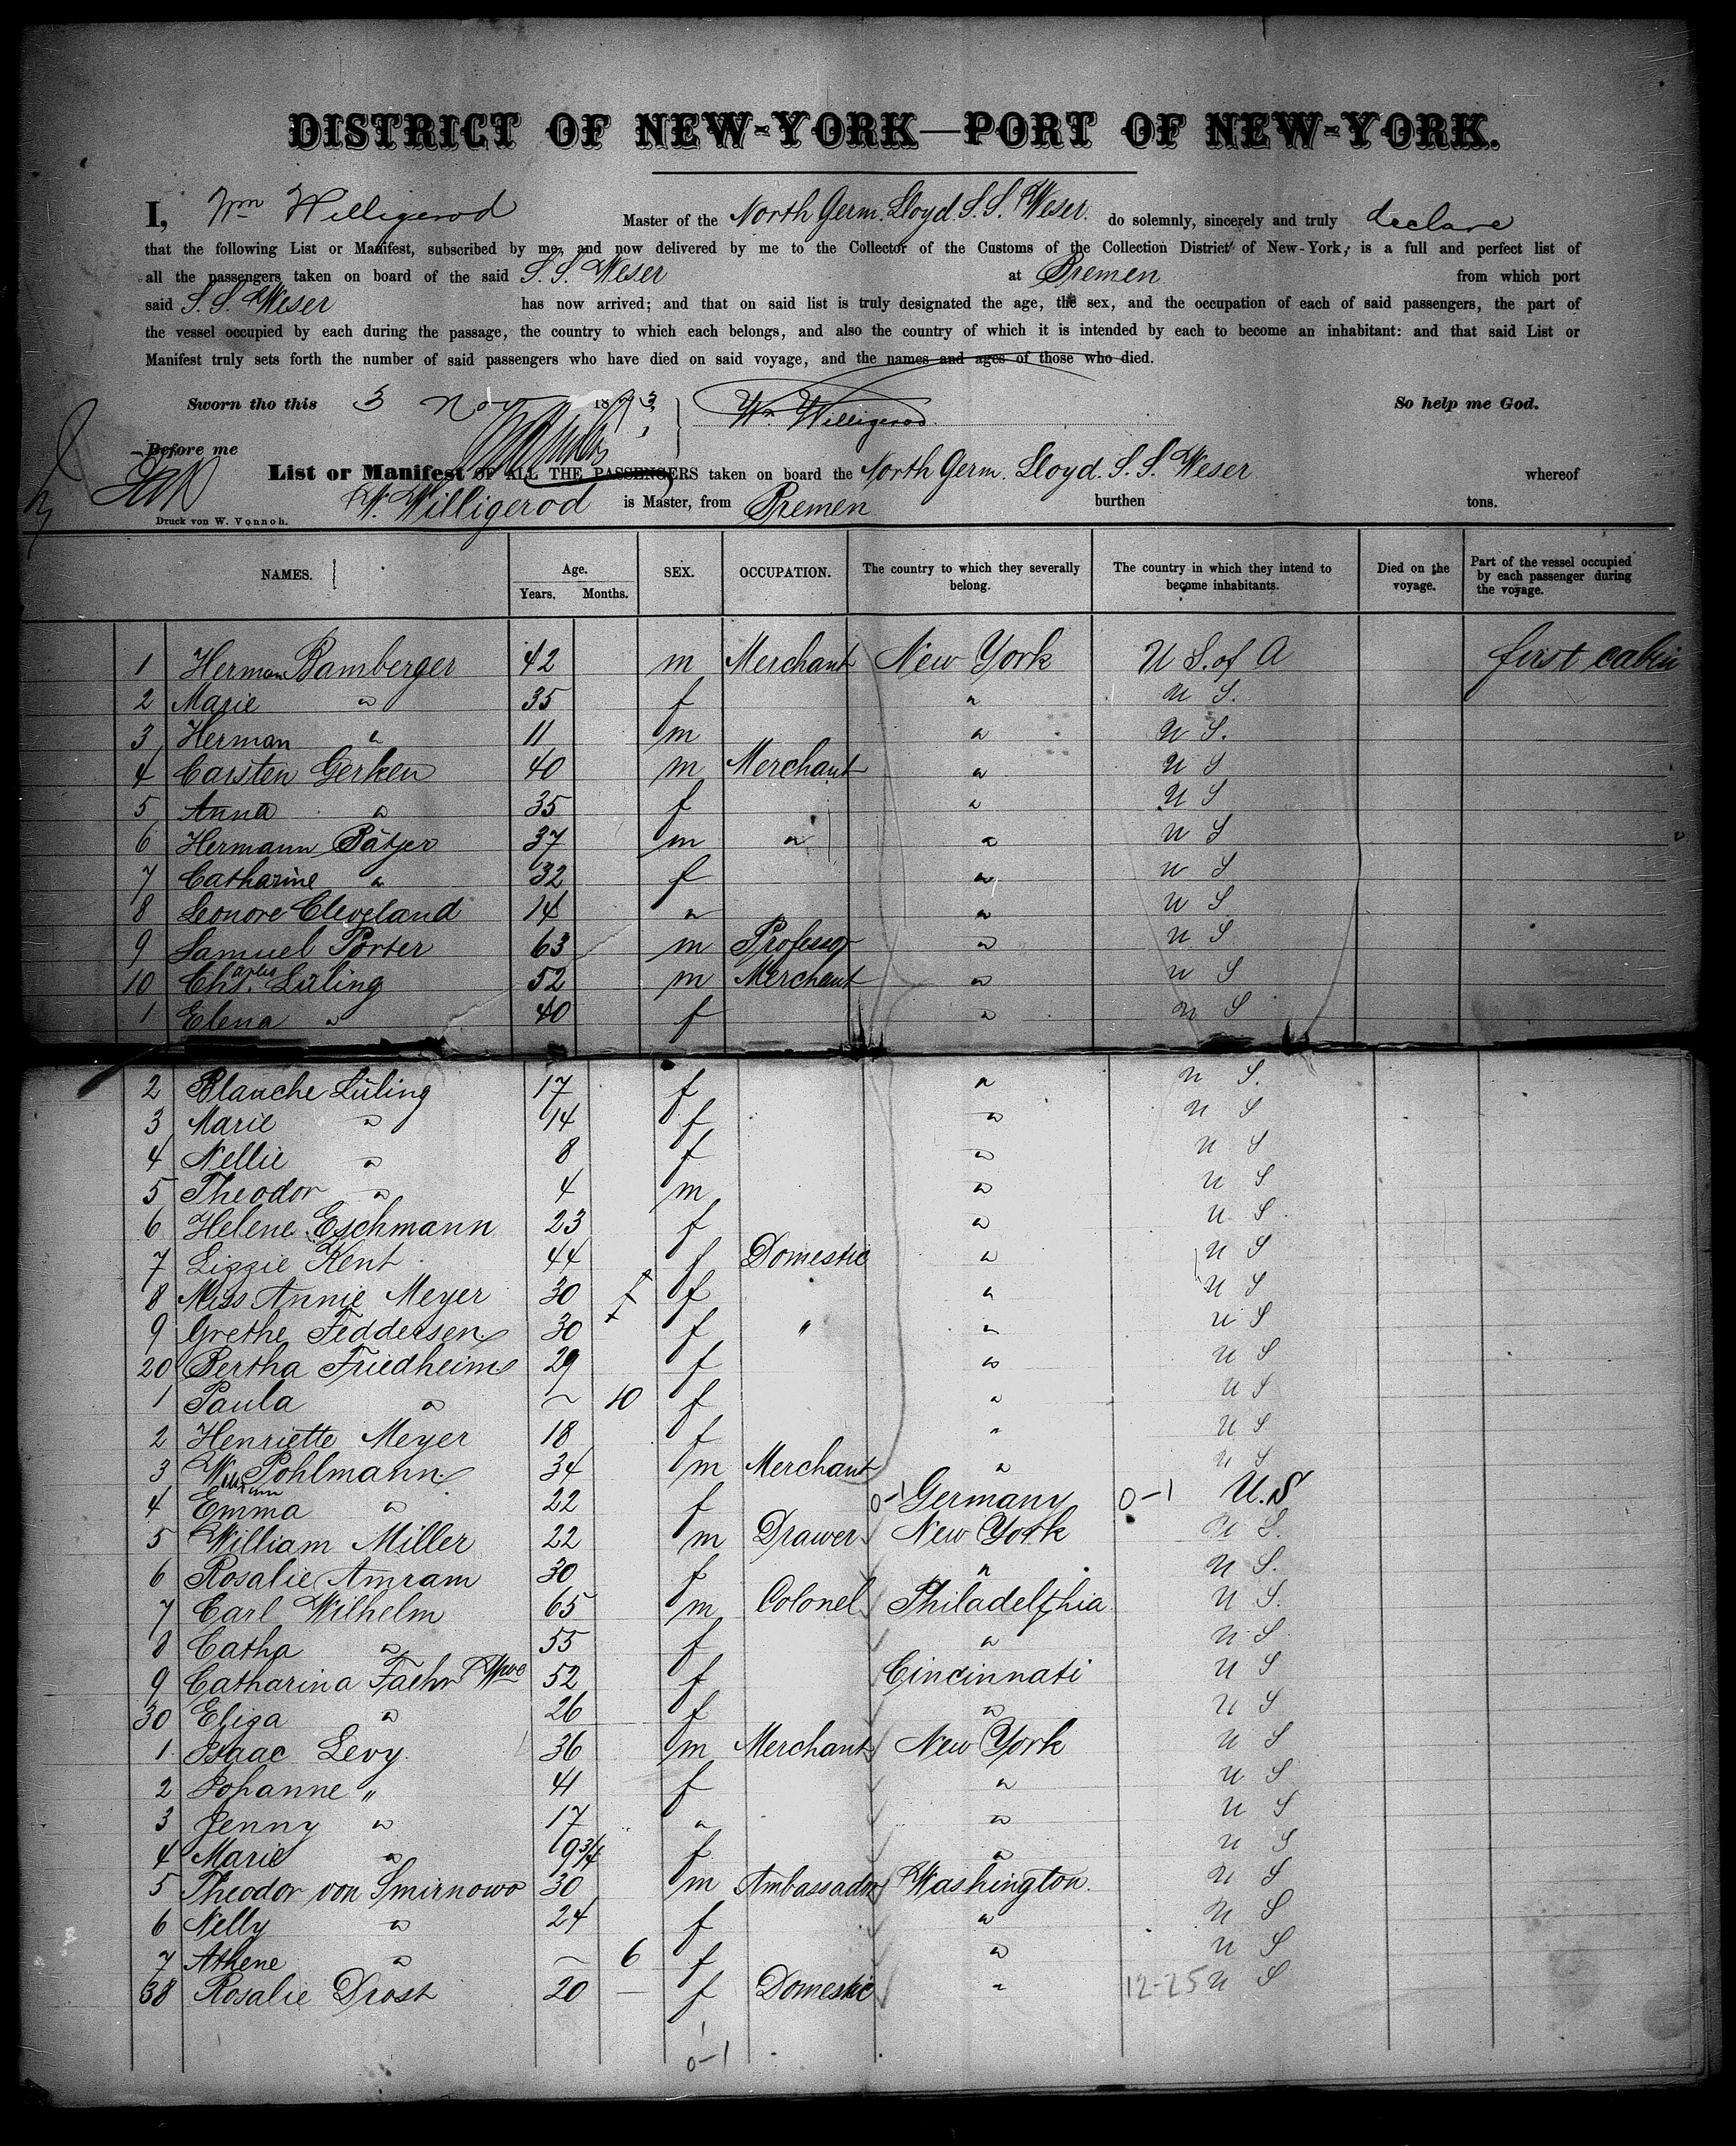 DISTRICT OF NEW-YORK—PORT OF NEW-YORK.
I, Wm Willigerod Master of the North Germ. Lloyd. S. S. Weser. do solemnly, sincerely and truly declare
that the following List or Manifest, subscribed by me, and now delivered by me to the Collector of the Customs of the Collection District of New-York, is a full and perfect list of
all the passengers taken on board of the said S. S. Weser at Bremen from which port
said S. S. Weser has now arrived; and that on said list is truly designated the age, the sex, and the occupation of each of said passengers, the part of
the vessel occupied by each during the passage, the country to which each belongs, and also the country of which it is intended by each to become an inhabitant: and that said List or
Manifest truly sets forth the number of said passengers who have died on said voyage, and the names and ages of those who died.
Sworn tho this 3 Nov 1873 Wm Willigerod. So help me God.
Before me
List or Manifest OF ALL THE PASSENGERS taken on board the North Germ. Lloyd. S. S. Weser whereof
W. Willigerod is Master, from Bremen burthen tons.
Druck von W. Vonnoh.
NAMES. Age. Years. Months. SEX. OCCUPATION. The country to which they severally belong. The country in which they intend to become inhabitants. Died on the voyage. Part of the vessel occupied by each passenger during the voyage.
1 Herman Bamberger 42 m Merchant New York U S. of A first cabin
2 Marie " 35 f " U S.
3 Herman " 11 m " U S.
4 Carsten Gerken 40 m Merchant " U S
5 Anna " 35 f " U S
6 Hermann Bätjer 37 m " " U S
7 Catharine " 32 f " U S
8 Leonore Cleveland 14 " " U S
9 Samuel Porter 63 m Professor " U S
10 Chs. arles Lüling 52 m Merchant " U S
1 Elena " 40 f " U S
2 Blanche Lüling 17 f " U S.
3 Marie " 14 f " U S
4 Nellie " 8 f " U S
5 Theodor " 4 m " U S
6 Helene Eschmann 23 f " U S
7 Lizzie Kent 44 f Domestic " U S
8 Miss Annie Meyer 30 f " U S
9 Grethe Feddersen 30 f " " U S
20 Bertha Friedheim 29 f " U S
1 Paula " ~ 10 f " U S
2 Henriette Meyer 18 f " U S
3 William Pohlmann 34 m Merchant " U S
4 Emma " 22 f 0-1 Germany 0-1 U.S
5 William Miller 22 m Drawer New York U S.
6 Rosalie Amram 30 f " U S.
7 Carl Wilhelm 65 m Colonel Philadelphia U S.
8 Catha " 55 f " U S
9 Catharina Faehr Wwe 52 f Cincinnati U S
30 Eliza " 26 f " U S
1 Isaac Levy 36 m Merchant New York U S
2 Johanne " 41 f " U S
3 Jenny " 17 " " U S
4 Marie " 9 3/4 f " U S
5 Theodor von Smirnowo 30 m Ambassador Washington. U S
6 Nelly " 24 f " U S
7 Athene " ~ 6 f " U S
38 Rosalie Drost 20 — f Domestic " 12-25 U S
0-1